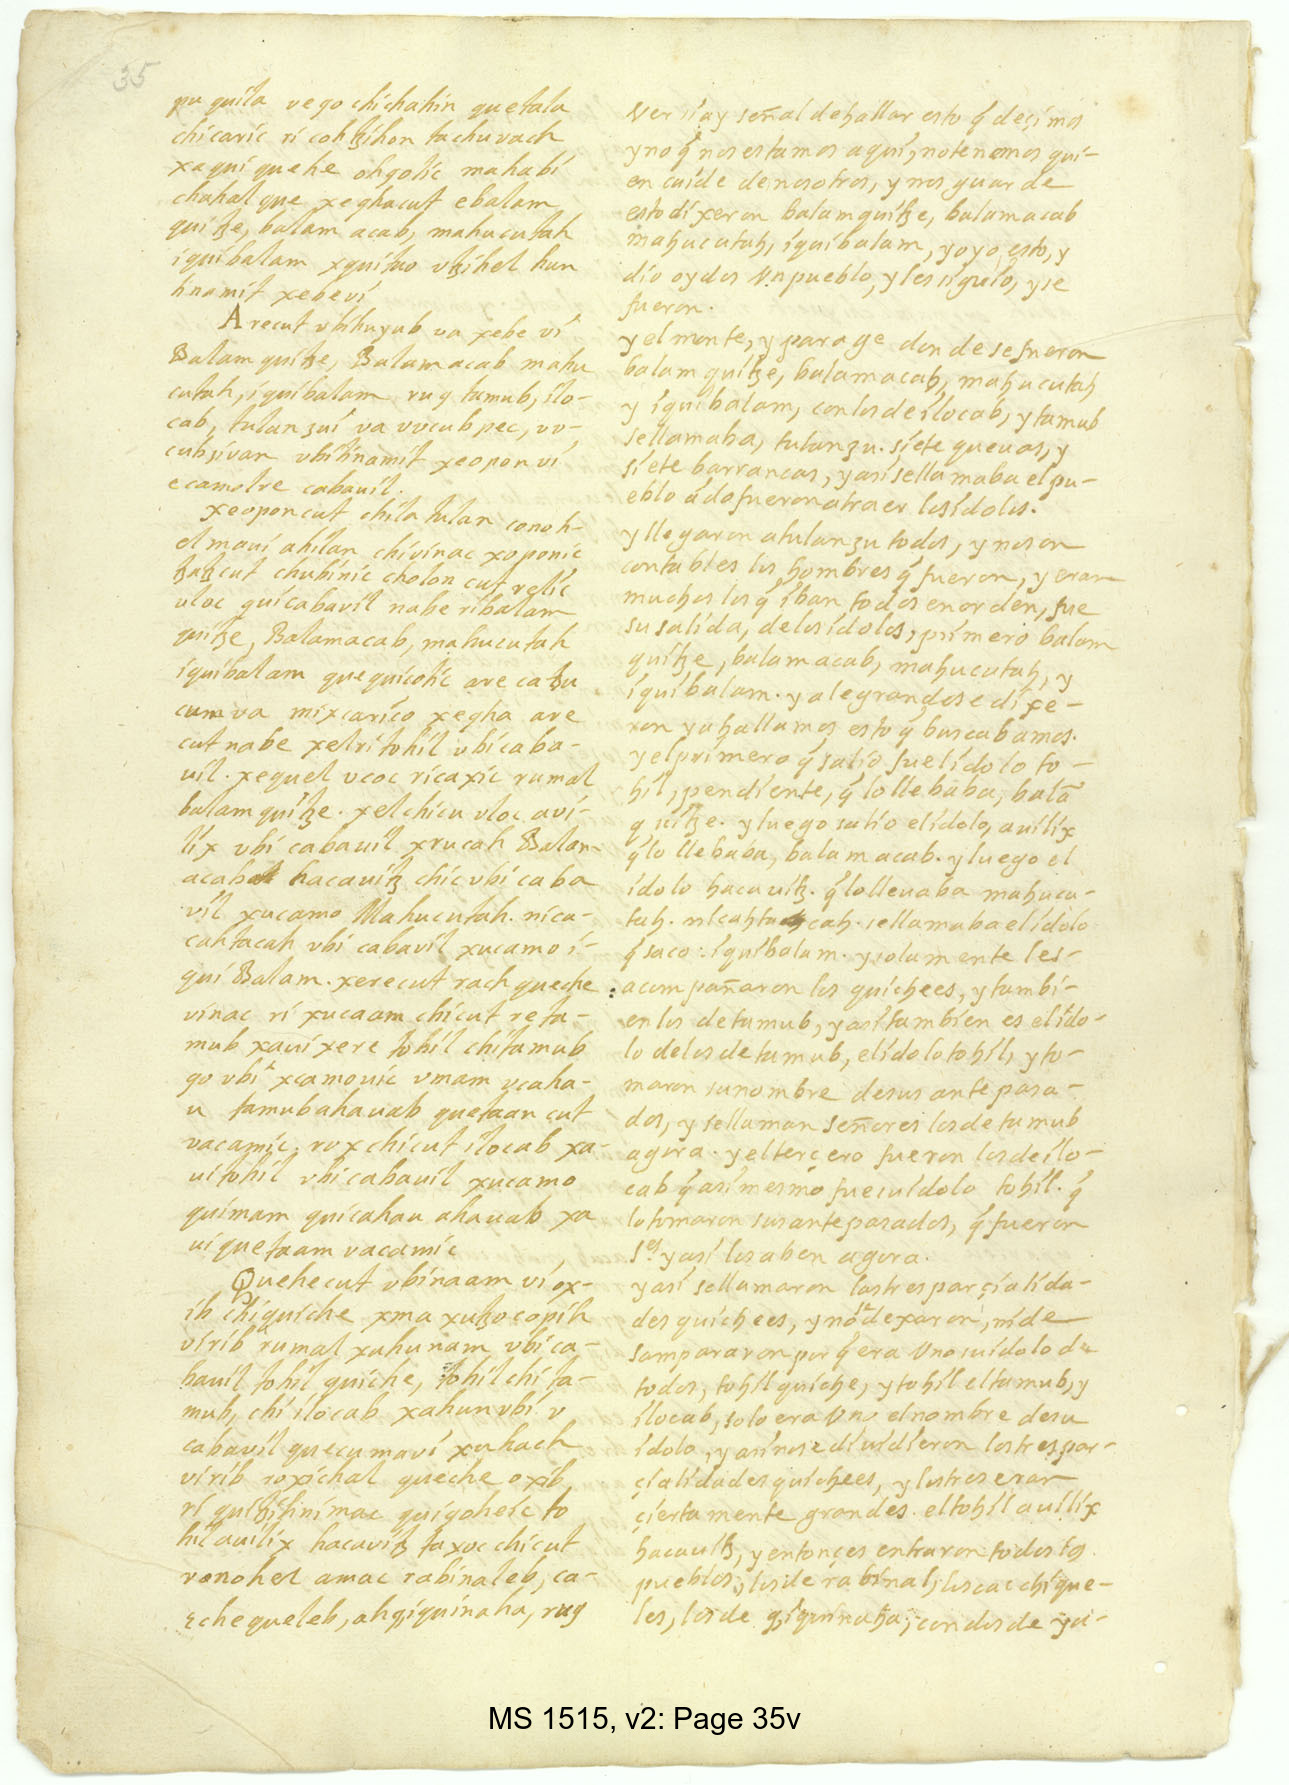 35
pu quila vego chichahin quetala
chicaric ri cohꜩihon tachuvach
xaqui quehe ohqolic mahabi
chahal que xeghacut e balam
quiꜩe, balam acab, mahucutah
iquibalam xquitao vꜩihel hun
hnamit xebevi
Arecut vbihuyub va xebe vi
Balam quiꜩe, Balam acab mahu
cutah, iquibalam rug tamub, ilo-
cab, tulan zui va vvcub pec, vv-
cub zivan vbi tinamit xeopon vi
ecamolre cabauil.
xeoponcut chila tulan conoh-
el maui ahilan chi vinac xoponic
ꜩaꜩcut chubinic cholon cut relic
uloc qui cabavil nabe ri balam
quiꜩe, Balam acab, mahucutah
iquibalam quequicotic are caꜩu
cum va mixcarico xegha are
cut nabe xel ri tohil vbi caba-
uil. xequel vcoc ri caxic rumal
balam quiꜩe. xelchicu uloc avi-
lix vbi cabauil xrucah Balan-
acab hacauiꜩ chic vbi caba
vil xucamo Mahucutah. nica-
cahtacah vbi cabavil xucamo i-
qui Balam. xerecut rach queche
vinac ri xucaam chicut reta-
mub xavi xere tohil chi tamub
go vbi xcamouic vmam vcaha-
u tamub ahauab quetaan cut
vacamic. rox chicut ilocab xa-
ui tohil vbi cabauil xucamo
quimam quicahau ahauab xa
ui quetaam vacamic
Quehecut vbinaam vi ox-
ib chi quiche xma xuꜩocopih
virib rumal xahunam vbi ca-
bauil tohil quiche, tohil chi ta-
mub, chi ilocab xahun vbi v
cabavil quecumavi xuhach
virib roxichal queche oxib
ri quiꜩihnimac quiqoheic to
hil auilix hacaviꜩ taxoc chicut
ronohel amac rabinaleb, ca-
cchequeleb, ahziquinaha, rug
ver si ay señal de hallar esto q̃ decimos
y no q̃ nos estamos aqui, no tenemos qui-
en cuide de nosotros, y nos guarde
esto dixeron balam quiꜩe, balam acab
mahucutah, iquibalam, y oyo esto, y
dio oydos Vn pueblo, y les siguio, y se
fueron.
y el monte, y parage donde se fueron
balam quiꜩe, balam acab, mahucutah
y iquibalam, con los de ilocab, y tamub
se llamaba, tulan zu. siete queuas, y
siete barrancas, y asi se llamaba el pu-
eblo a do fueron a traer los idolos.
y llegaron a tulan zu todos, y no son
contables los hombres q̃ fueron, y eran
muchos los q̃ iban todos en orden, fue
su salida, de los idolos, primero balam
quiꜩe, balam acab, mahucutah, y
iquibalam. y alegrandose dixe-
ron ya hallamos esto q̃ buscabamos.
y el primero q̃ salio fue el idolo to-
hil, pendiente, q̃ lo llebaba, balã
quiꜩe. y luego salio el idolo, auilix
q̃ lo llebaba, balam acab. y luego el
idolo hacauiꜩ. q̃ lo lleuaba mahucu-
tah. nicahtacah. se llamaba el idolo
q̃ saco: iquibalam. y solamente les-
acompañaron los quichees, y tambi-
en los de tamub, y asi tambien es el ido-
lo de los de tamub, el idolo tohil, y to-
maron su nombre de sus antepasa-
dos, y se llaman señores los de tamub
agora. y el tercero fueron los de ilo-
cab q̃ asi mesmo fue su idolo tohil. q̃
lo tomaron sus antepasados, q̃ fueron
Ses y asi lo saben agora.
y asi se llamaron las tres parcialida-
des quichees, y no se dexaron, ni de
sampararon por q̃ era Vno su idolo de
todos, tohil quiche, y tohil el tamub, y
ilocab, solo era Vno el nombre de su
idolo, y asi no se diuidieron las tres par-
cialidades quichees, y los tres eran
ciertamente grandes. el tohil auilix
hacauiꜩ, y entonces entraron todos los
pueblos, los de rabinal, los cacchique-
les, los de ziquinaha, con los de ya-
MS 1515, v2: Page 35v